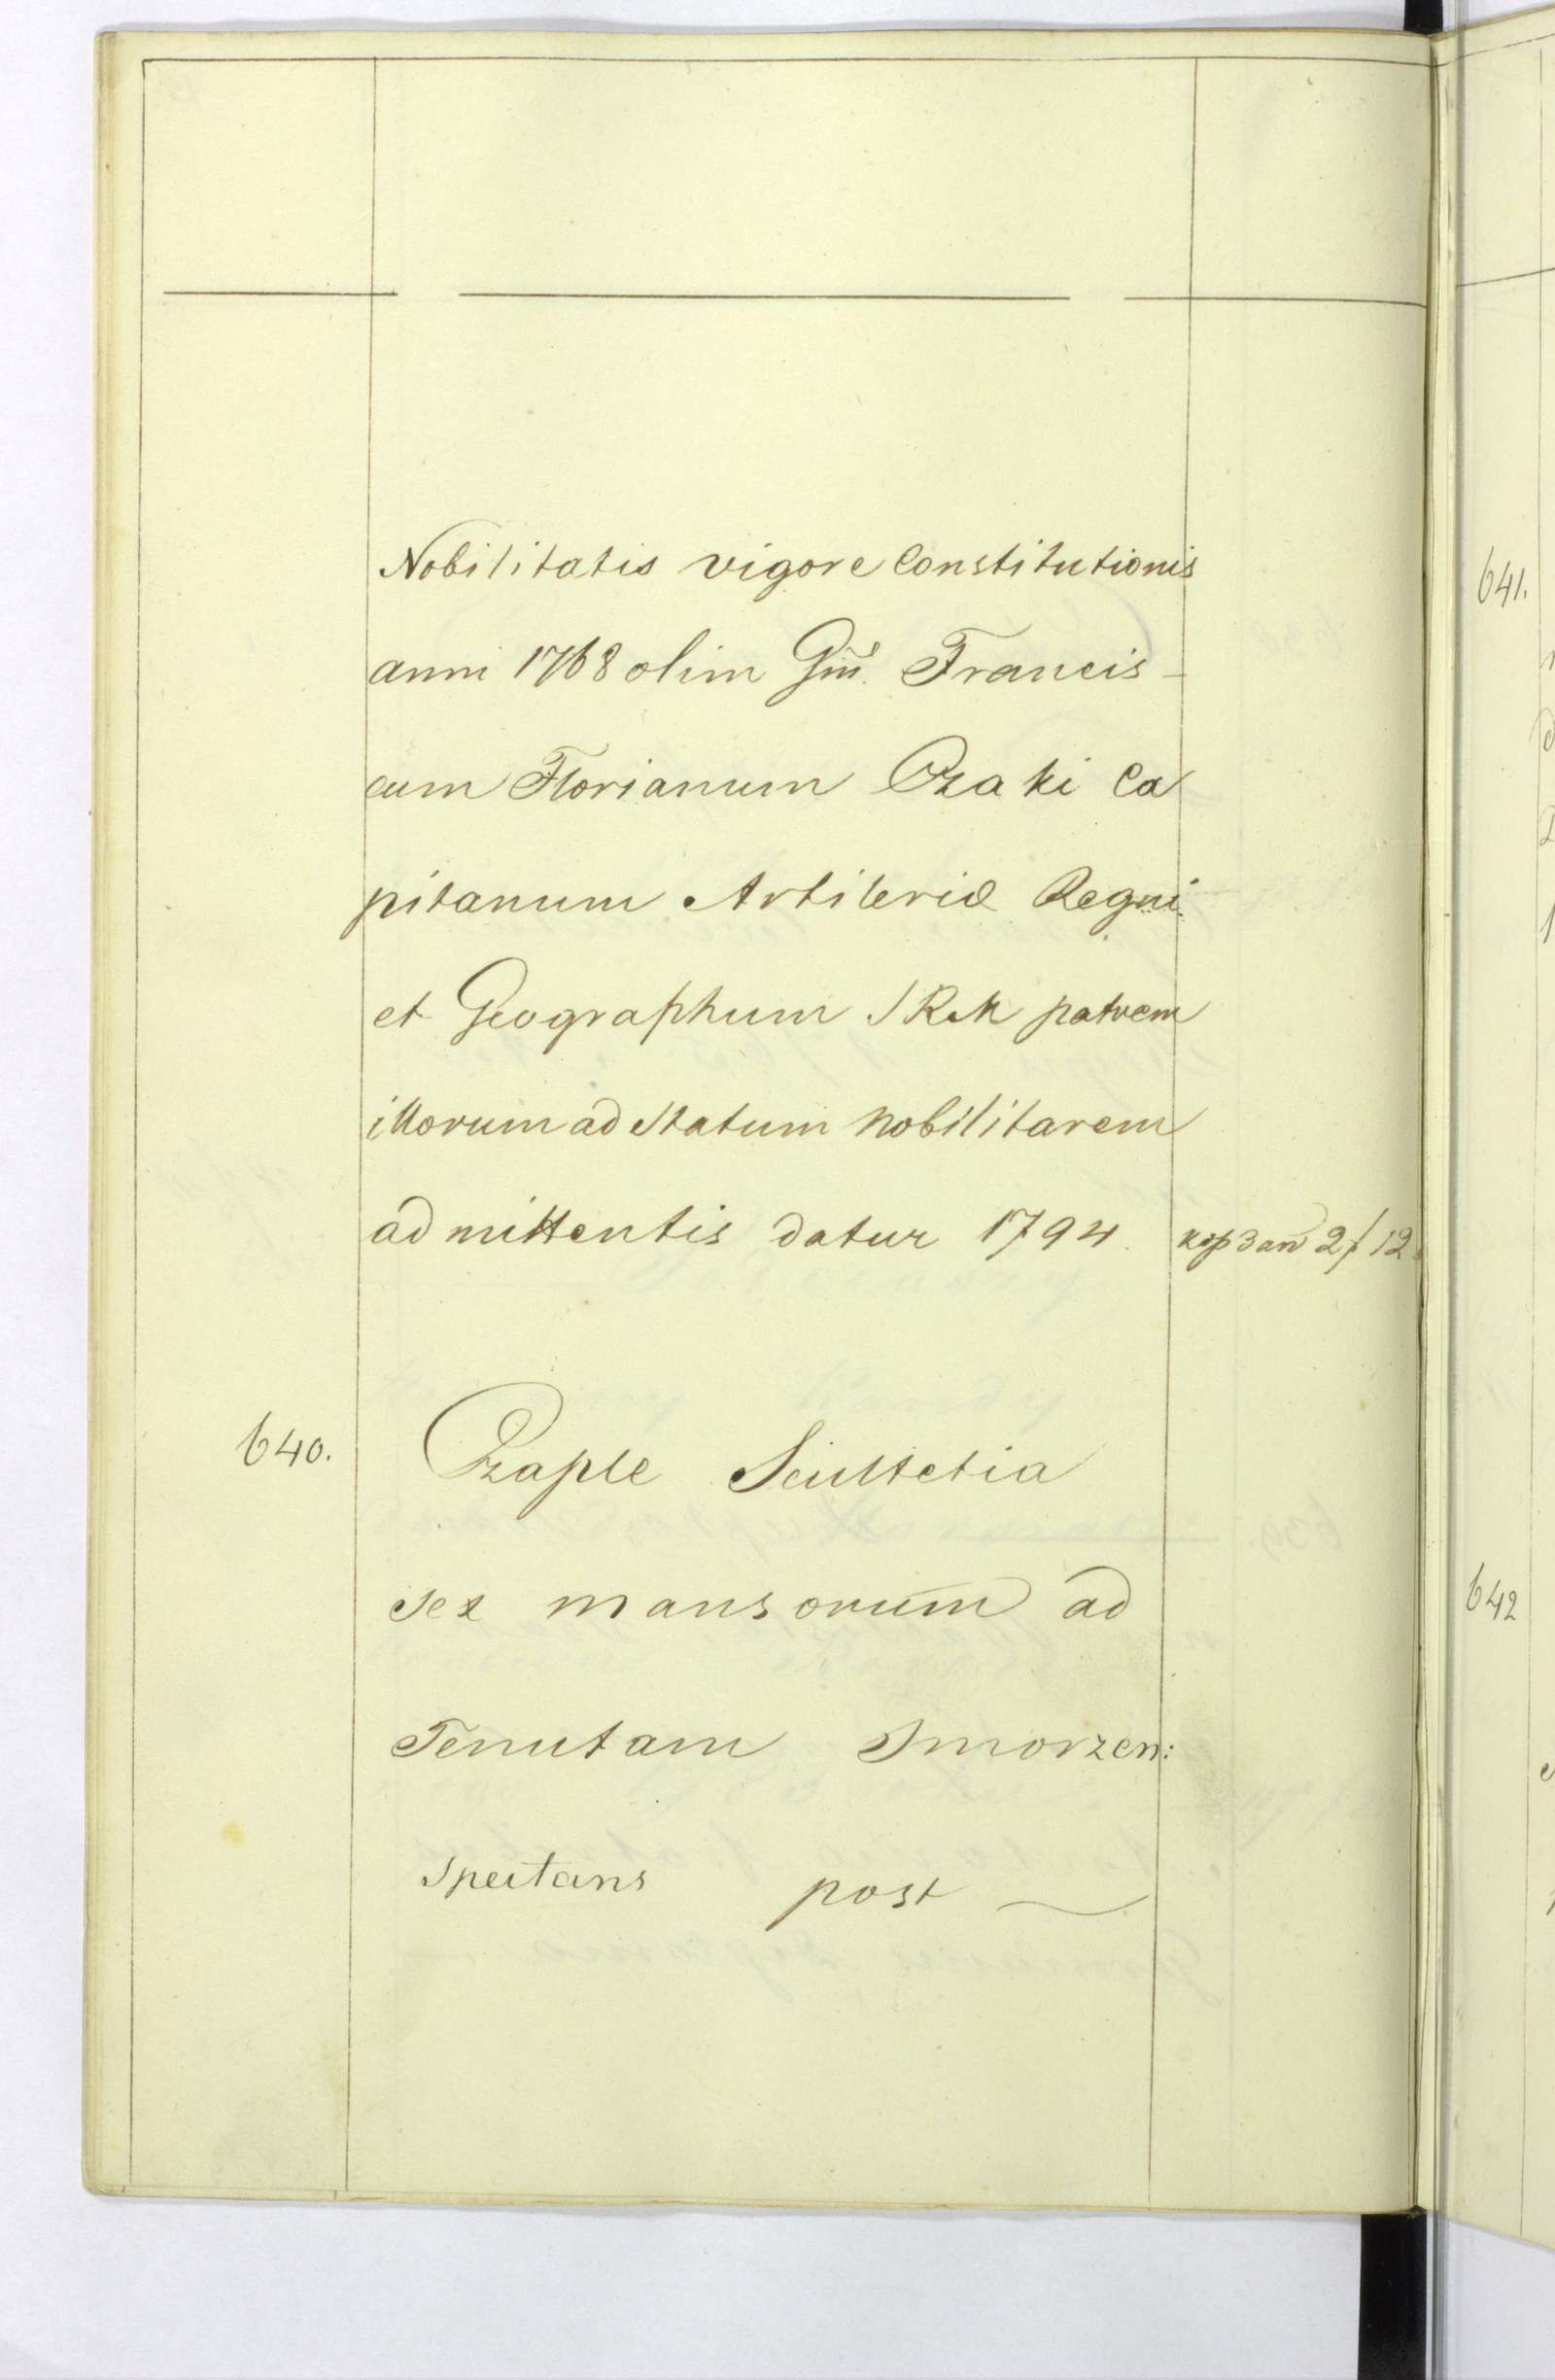 Nobilitatis vigore Constitutionis
anni 1768 olim Gm̃. Francis-
cum Florianum Czaki Ca
pitanum Artileriæ Regni
et Geographum SRM patrem
illorum ad Statum Nobilitarem
admittentis datur 1794.
640. Czaple Scultetia
sex mansorum ad
Tenutam Smorzen:
Spectans post
641.
642